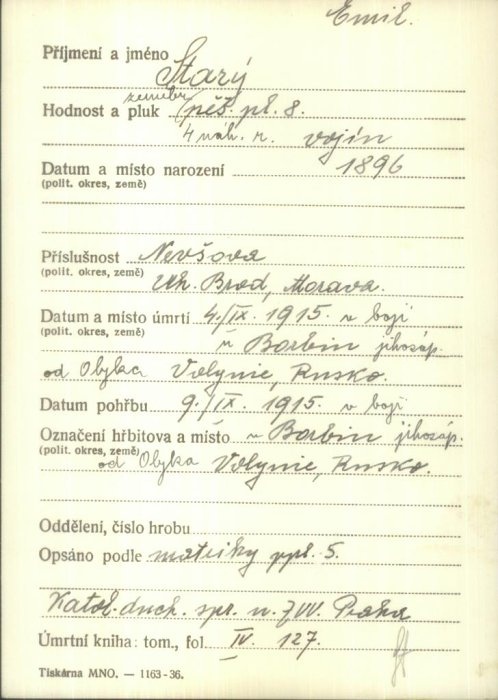 Emil.
Příjmení a jméno Starý
zeměbr.
Hodnost a pluk pěš. pl. 8.
4 náh. r. vojín
Datum a místo narození 1896
(polit. okres, země)
Příslušnost Nevšova
(polit. okres, země) Uh. Brod, Morava.
Datum a místo úmrtí 4./IX. 1915. v boji
(polit. okres, země) u Borbin jihozáp.
od Olyka Volynie, Rusko.
Datum pohřbu 9./IX. 1915. v boji
Označení hřbitova a místo u Borbin jihozáp.
(polit. okres, země) od Olyka Volynie, Rusko.
Oddělení, číslo hrobu
Opsáno podle matriky ppl. 5.
Katol. duch. spr. u ZVV. Praha
Úmrtní kniha: tom., fol IV. 127.
Tiskárna MNO. — 1163-36.